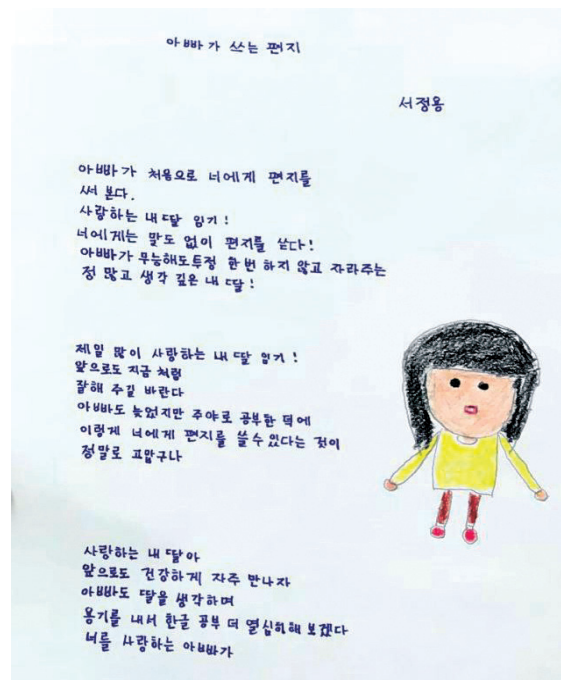 아빠가 쓰는 편지
서정용
아빠가 처음으로 너에게 편지를
써 본다.
사랑하는 내 딸
너에게는 말도 없이 편지를 쓴다!
아빠가 무능해도 투정 한 번 하지 않고 자라주는
정 많고 생각 깊은 내 딸!
제일 많이 사랑하는 내 딸
앞으로도 지금 처럼
잘해 주길 바란다
아빠도 늦었지만 주야로 공부한 덕에
이렇게 너에게 편지를 쓸수 있다는 것이
정말로 고맙구나
사랑하는 내 딸아
앞으로도 건강하게 자주 만나자
아빠도 딸을 생각하며
용기를 내서 한글 공부 더 열심히해 보겠다
너를 사랑하는 아빠가